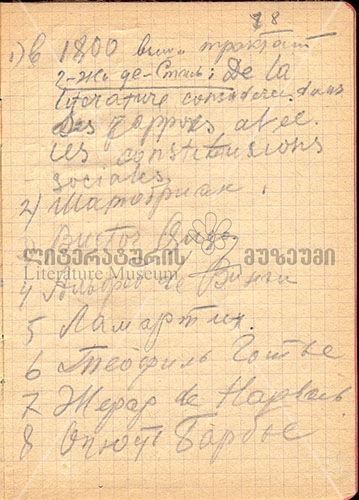 18
1) в 1800 вышел трактат
г-жи де-Сталь: De la
literature consideree dans
ses rapports avec
les constitusions
sociales.
2) Шатобриан.
3 Виктор Гюго
ლიტერატურის მუზეუმი
Literature Museum
4 Альфред де Виньи
5 Ламартин.
6 Теофиль Готье
7 Жерар de Нарваль
8 Огюст Барбье